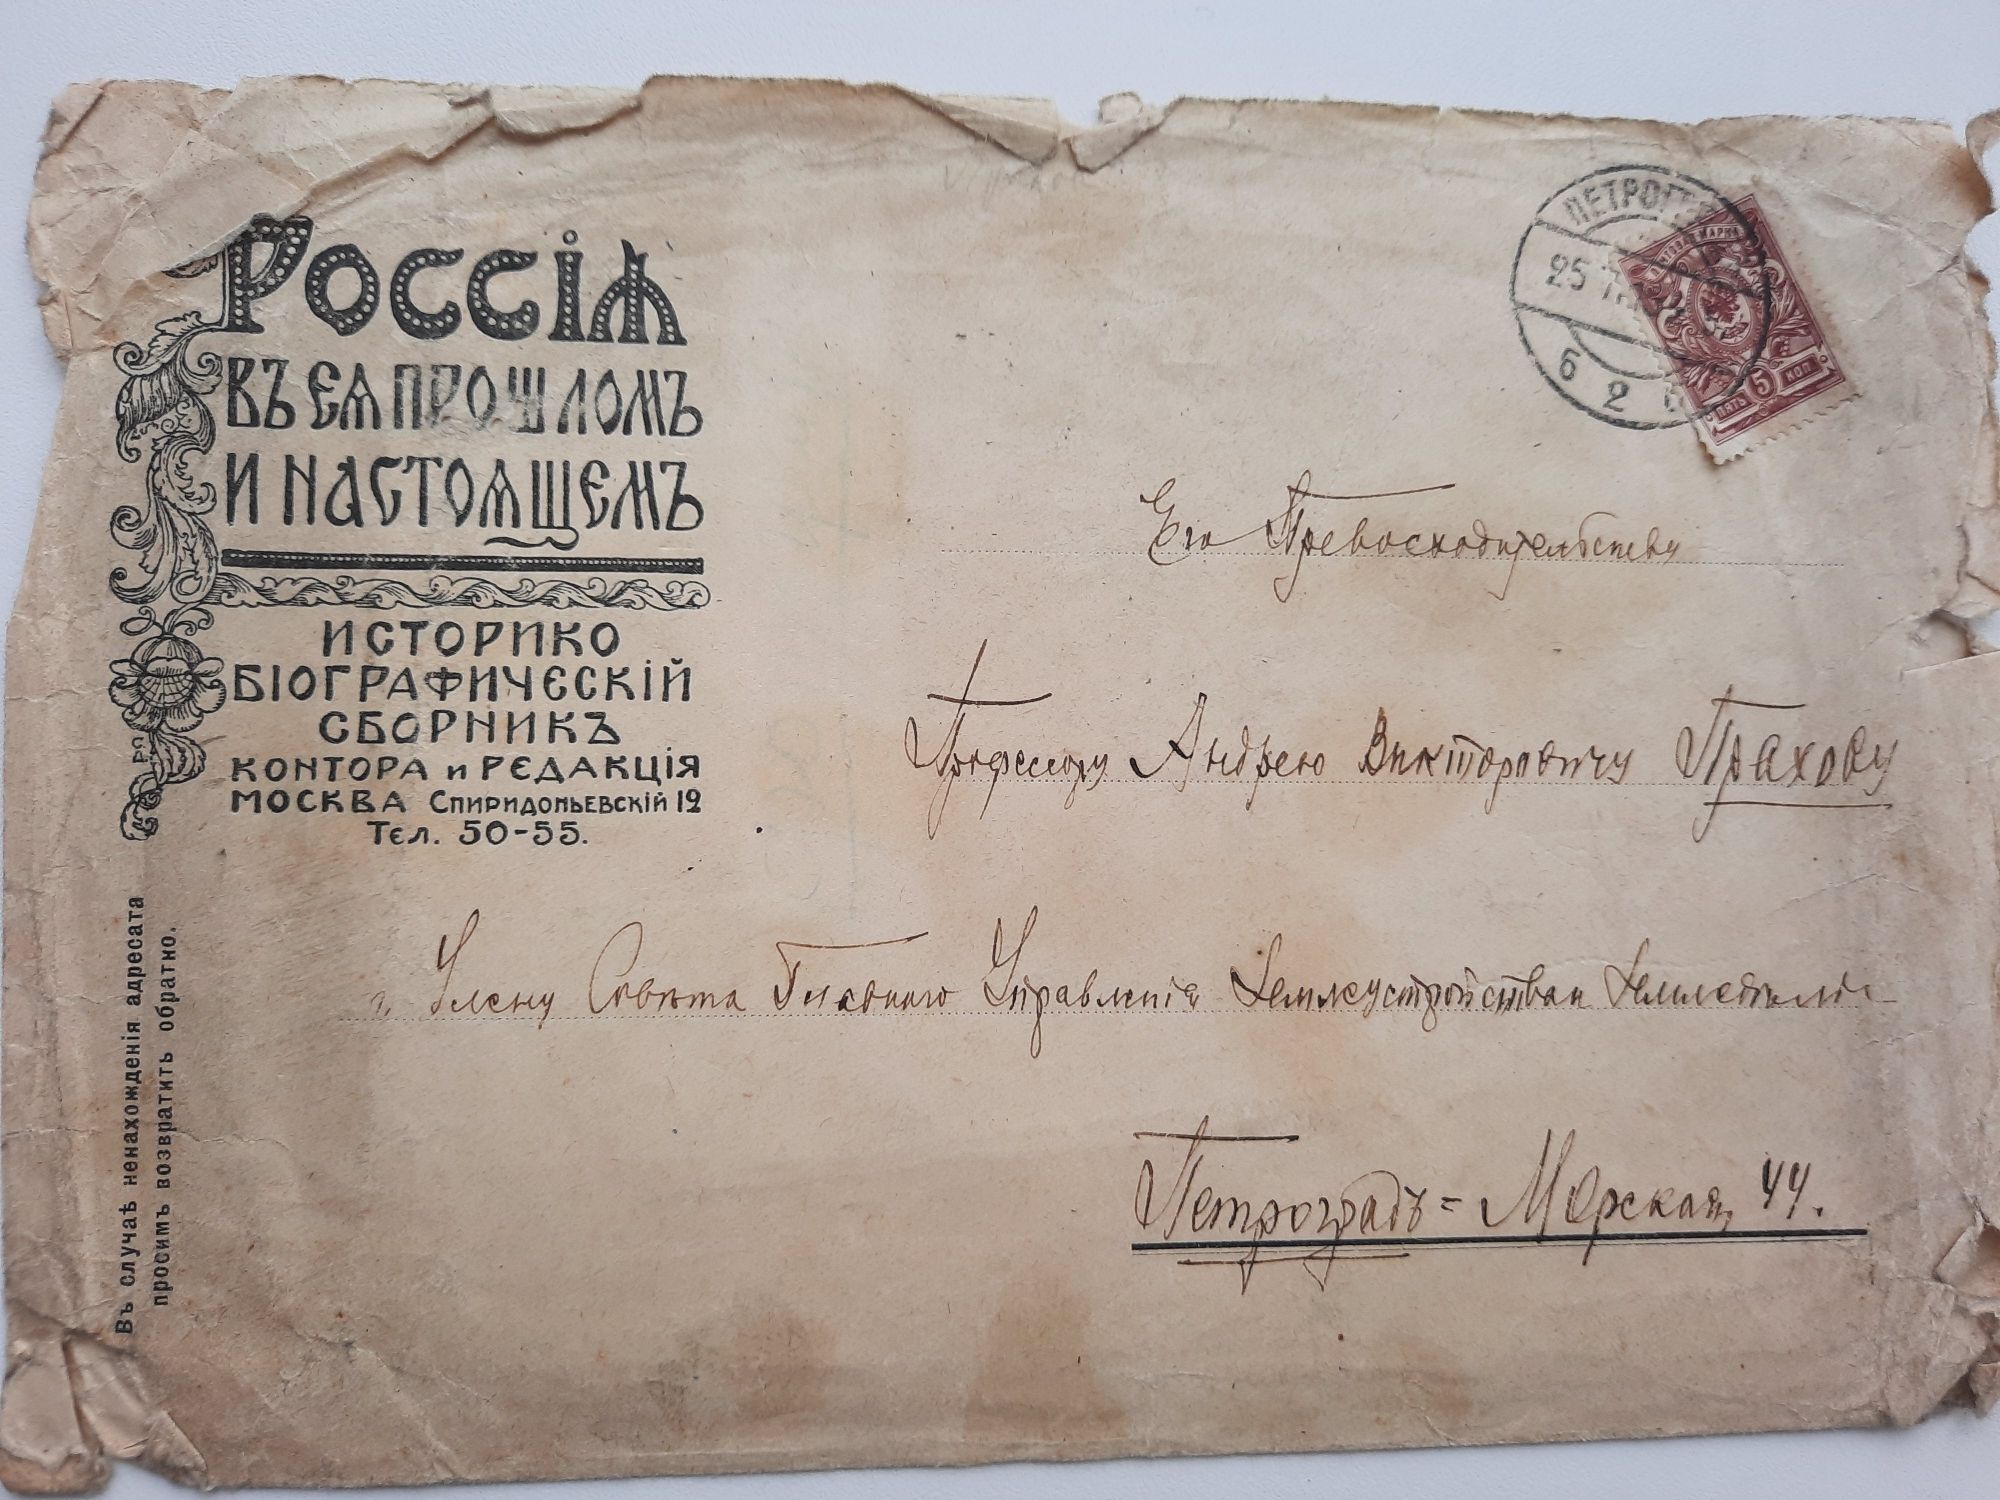 Россія
въ ея прошломъ
и настоящемъ
Историко
біографическій
сборникъ
Контора и редакція
Москва Спиридоньевскій 12
Тел. 50-55.
Въ случаѣ ненахожденія адресата
просимъ возвратить обратно.
ПЕТРОГР
25 7
6 2
ПОЧТОВАЯ МАРКА
ПЯТЬ 5 КОП
Его Превосходительству
Профессору Андрею Викторовичу Прахову
Члену Совѣта Главнаго Управленія Землеустройства и
Петроградъ = Морская, 44.